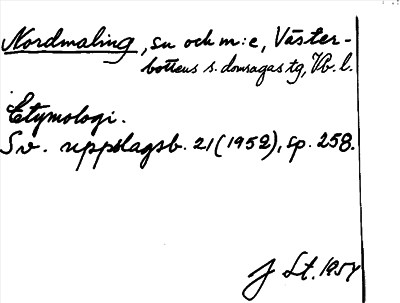 Nordmaling, sn och m:e, Väster-
bottens s. domsagas tg, Vb. l.
Etymologi.
Sv. uppslagsb. 21 (1952), sp. 258.
J St. 1954